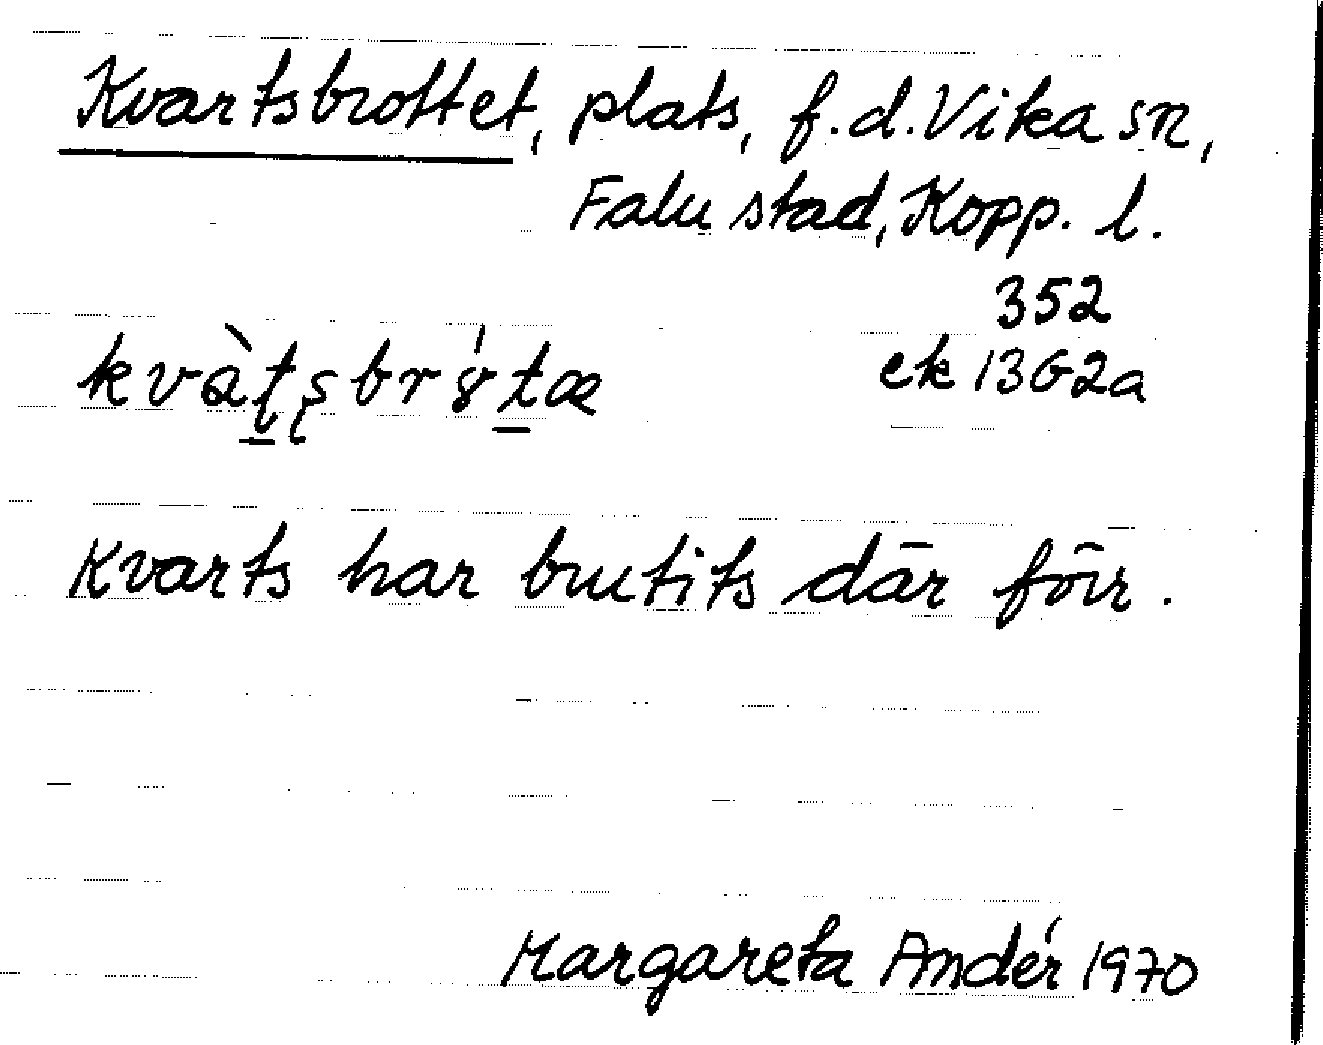 Kvartsbrottet, plats, f.d. Vika sn,
Falu stad, Kopp. l.
352
ek 13G2a
Kvarts har brutits där förr.
Margareta Andér 1970